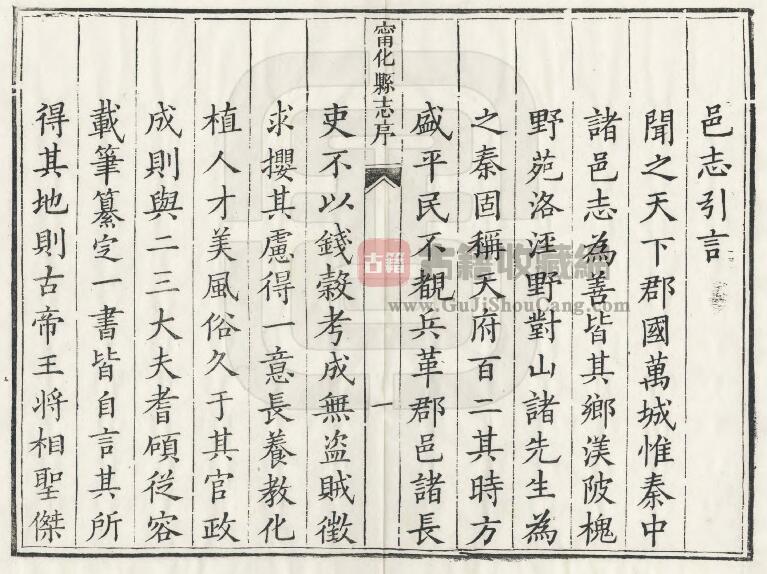 邑志引言
聞之天下郡國萬城惟秦中
諸邑志為善皆其鄉渼陂槐
野苑洛涇野對山諸先生為
之秦固稱天府百二其時方
盛平民不覩兵革郡邑諸長
甯化縣志序
一
吏不以錢穀考成無盜賊徵
求攖其慮得一意長養教化
植人才美風俗久于其官政
成則與二三大夫耆碩從容
載筆纂定一書皆自言其所
得其地則古帝王將相聖傑
古籍
古籍收藏網
www.GuJiShouCang.com